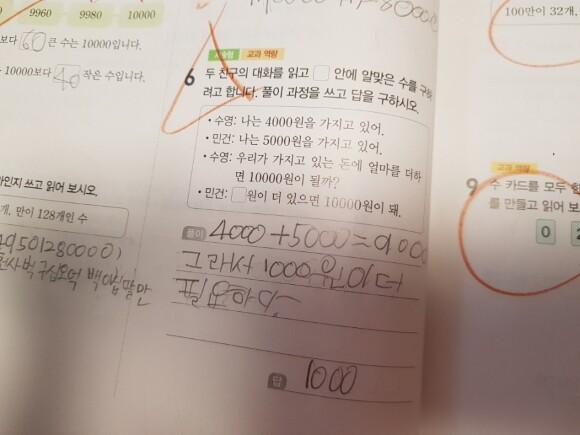 9960 9980 10000
보다 60 큰 수는 10000입니다.
10000보다 40 작은 수입니다.
인지 쓰고 읽어 보시오.
개, 만이 128개인 수
백이십팔만
서술형 교과 역량
6 두 친구의 대화를 읽고 □ 안에 알맞은 수를 구하
려고 합니다. 풀이 과정을 쓰고 답을 구하시오.
• 수영: 나는 4000원을 가지고 있어.
• 민건: 나는 5000원을 가지고 있어.
• 수영: 우리가 가지고 있는 돈에 얼마를 더하
면 10000원이 될까?
• 민건: □원이 더 있으면 10000원이 돼.
풀이 4000+5000=9000
그래서 1000원이 더
필요하다.
답 1000
100만이 32개,
교과 역량
9 수 카드를 모두 한
를 만들고 읽어 보
0 2